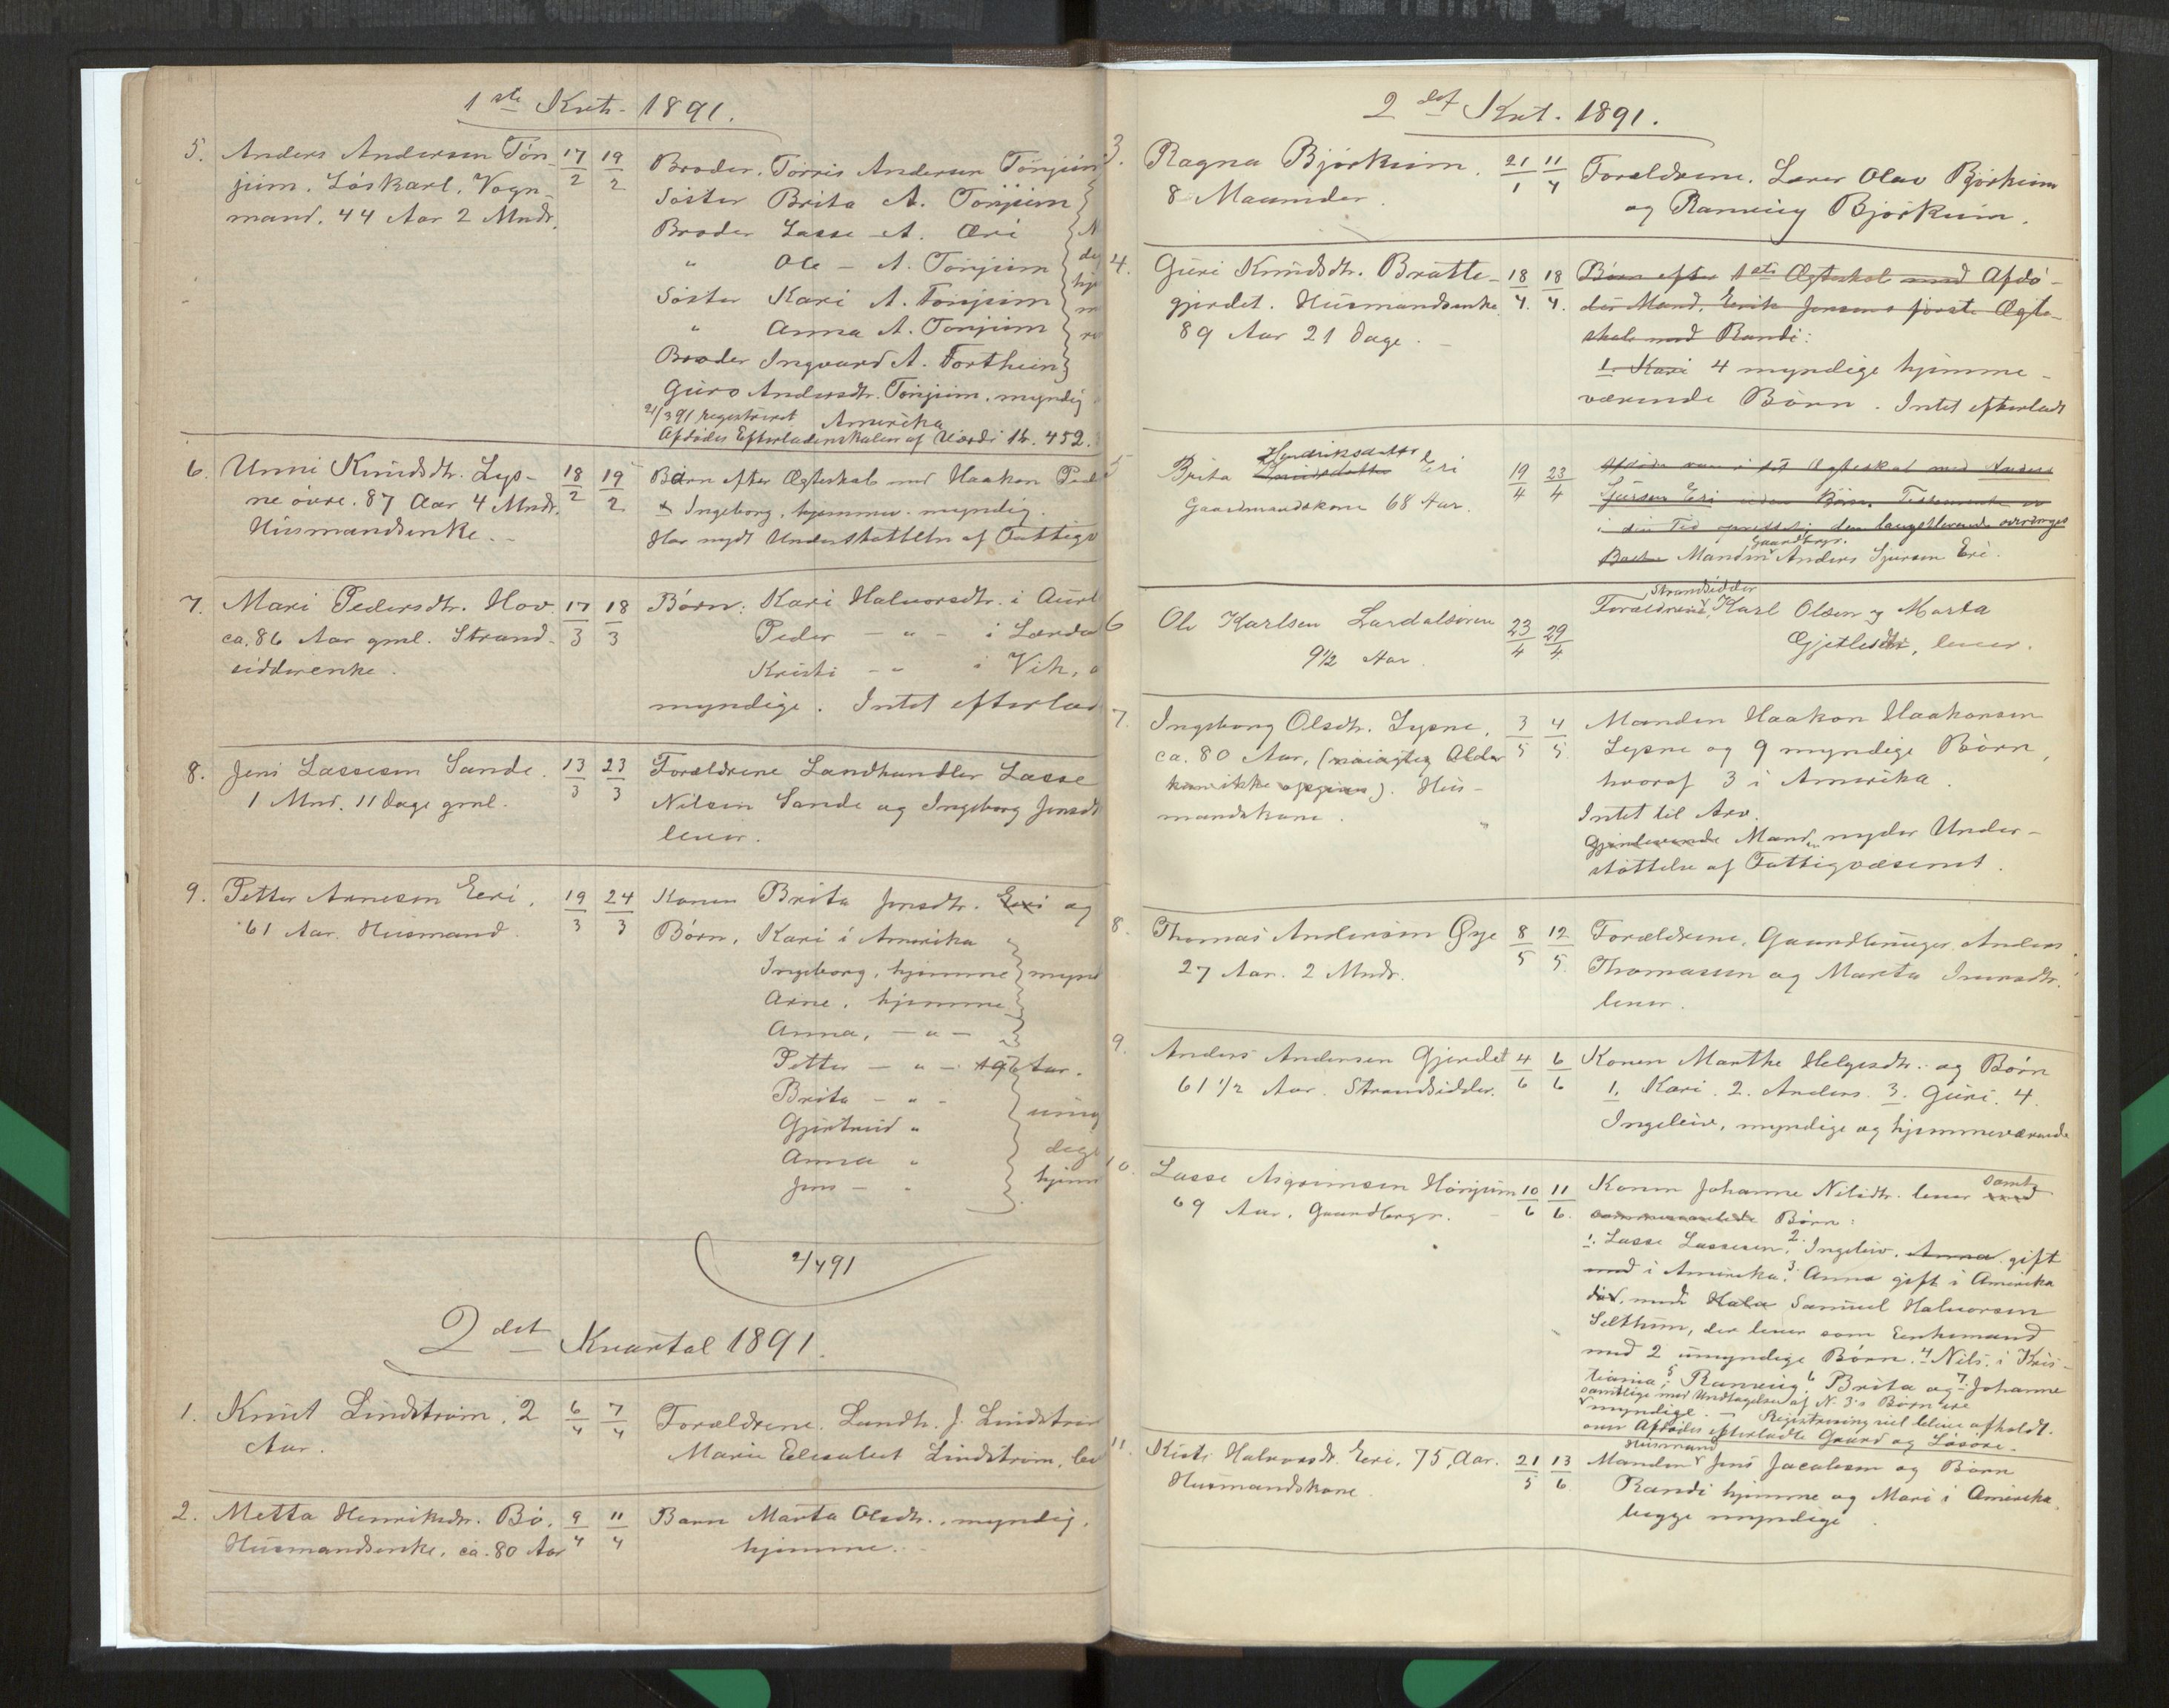 1ste Krts. 1891.
5. Anders Andersen Tön- 17/2 19/2 Broder. Torris Andersen Tönjum
jum. Löskarl. Vogn- Söster Brita A. Tönjum
mand. 44 Aar 2 Mndr. Broder Lasse A. Œri
" Ole - A. Tönjum
Söster Kari A. Tönjum
" Anna A. Tönjum
Broder Ingvard A. Fortheim
Guro Andersdtr. Tönjum, myndig
21/3 91 registreret Amerika
Afdödes Efterladenskaber af Værdi Kr. 452.
6. Unni Knudsdtr. Lys- 18/2 19/2 Börn efter Ægteskab med Haakon Ped
ne övre. 87 Aar 4 Mndr. Ingeborg, hjemme. myndig.
Husmandsenke. Har nydt Understöttelse af Fattigv
7. Mari Pedersdtr. Hov 17/3 18/3 Börn: Kari Halvorsdtr. i Aurl
ca. 86 Aar gml. Strand- Peder - " - i Lærda
sidderenke. Kristi - " i Vik, a
myndige. Intet efterlad
8. Jens Lassesen Sande. 13/3 23/3 Forældrene Landhandler Lasse
1 Mnd. 11 Dage gml. Nilsen Sande og Ingeborg Jensdt
lever.
9. Petter Arnesen Eeri, 19/3 24/3 Konen Brita Jensdtr. Eeri og
61 Aar. Husmand. Börn, Kari i Amerika
Ingeborg, hjemme mynd
Arne, hjemme
Anna, - " -
Petter - " - 19 Aar.
Brita - " - umy
Gjertrud " dige
Anna " hjem
Jens - "
2/4 91
2det Kvartal 1891.
1. Knut Lindström, 2 6/4 7/4 Forældrene. Landh. J. Lindström
Aar. Marie Elesabet Lindström, lev
2. Metta Henriksdtr. Bö, 9/4 11/4 Barn Marta Olsdtr., myndig,
Husmandsenke, ca. 80 Aar hjemme.
2det Krt. 1891.
3. Ragna Björkum. 21/1 11/4 Forældrene. Lærer Olav Björkum
8 Maaneder. og Ranveig Björkum.
4. Guri Knudsdtr. Bratte- 18/4. 18/4. Börn efter 1ste Ægteskab med Afdö-
gjerdet. Husmandsenke des Mand, Erik Jensens förste Ægte-
89 Aar 21 Dage. skab med Randi:
1. Kari 4 myndige hjemme-
værende Börn. Intet efterladt
5 Brita Hendriksdatter Eri 19/4 23/4 Afdöde var i Ægteskab med Anders
Gaardmandskone 68 Aar. Sjursen Eri uden Börn. Testamente er
i din Tid oprettet, den længstlevende
Gaardbrgr.
Manden Anders Sjursen Eri.
6 Ole Karlsen Lærdalsören 23/4 29/4 Forældrene Strandsidder Karl Olsen og Marta
9½ Aar. Gjetlesdtr, lever.
7. Ingeborg Olsdtr. Lysne, 3/5 4/5 Manden Haakon Haakonsen
ca. 80 Aar, (nöiagtig Alder Lysne og 9 myndige Börn,
kan ikke opgives). Hus- hvoraf 3 i Amerika.
mandskone. Intet til Arv.
Gjenlevende Mand nyder Under-
stöttelse af Fattigvæsenet.
8. Thomas Andersen Öye 8/5 12/5. Forældrene, Gaardbruger Anders
27 Aar. 2 Mndr. Thomassen og Marta Iversdtr.
lever.
9. Anders Andersen Gjerdet 4/6 6/6 Konen Marthe Helgesdtr. og Börn
61 1/2 Aar. Strandsidder. 1. Kari. 2. Anders. 3. Guri. 4.
Ingeleiv, myndige og hjemmeværende
10. Lasse Asgrimsen Hönjum 10/6 11/6. Konen Johanne Nilsdtr. lever samt med
69 Aar. Gaardbrgr. Börn:
1. Lasse Lassesen, 2. Ingeleiv, Anna gift
med i Amerika. 3. Anna gift i Amerika
död, med Hala Samuel Halvorsen
Selthun, der lever som Enkemand
med 2 umyndige Börn. 4 Nils. i Kris-
tiania, 5 Ranveig, 6 Brita og 7. Johanne
samtlige med Undtagelse af N. 3's Börn ere
myndige. - Registrering vil blive afholdt.
over Afdödes efterladte Gaard og Lösöre.
11. Kisti Halvorsdtr. Eeri, 75 Aar. 21/5 13/6 Manden Husmand Jens Jacobsen og Börn
Husmandskone. Randi hjemme og Mari i Amerika,
begge myndige.